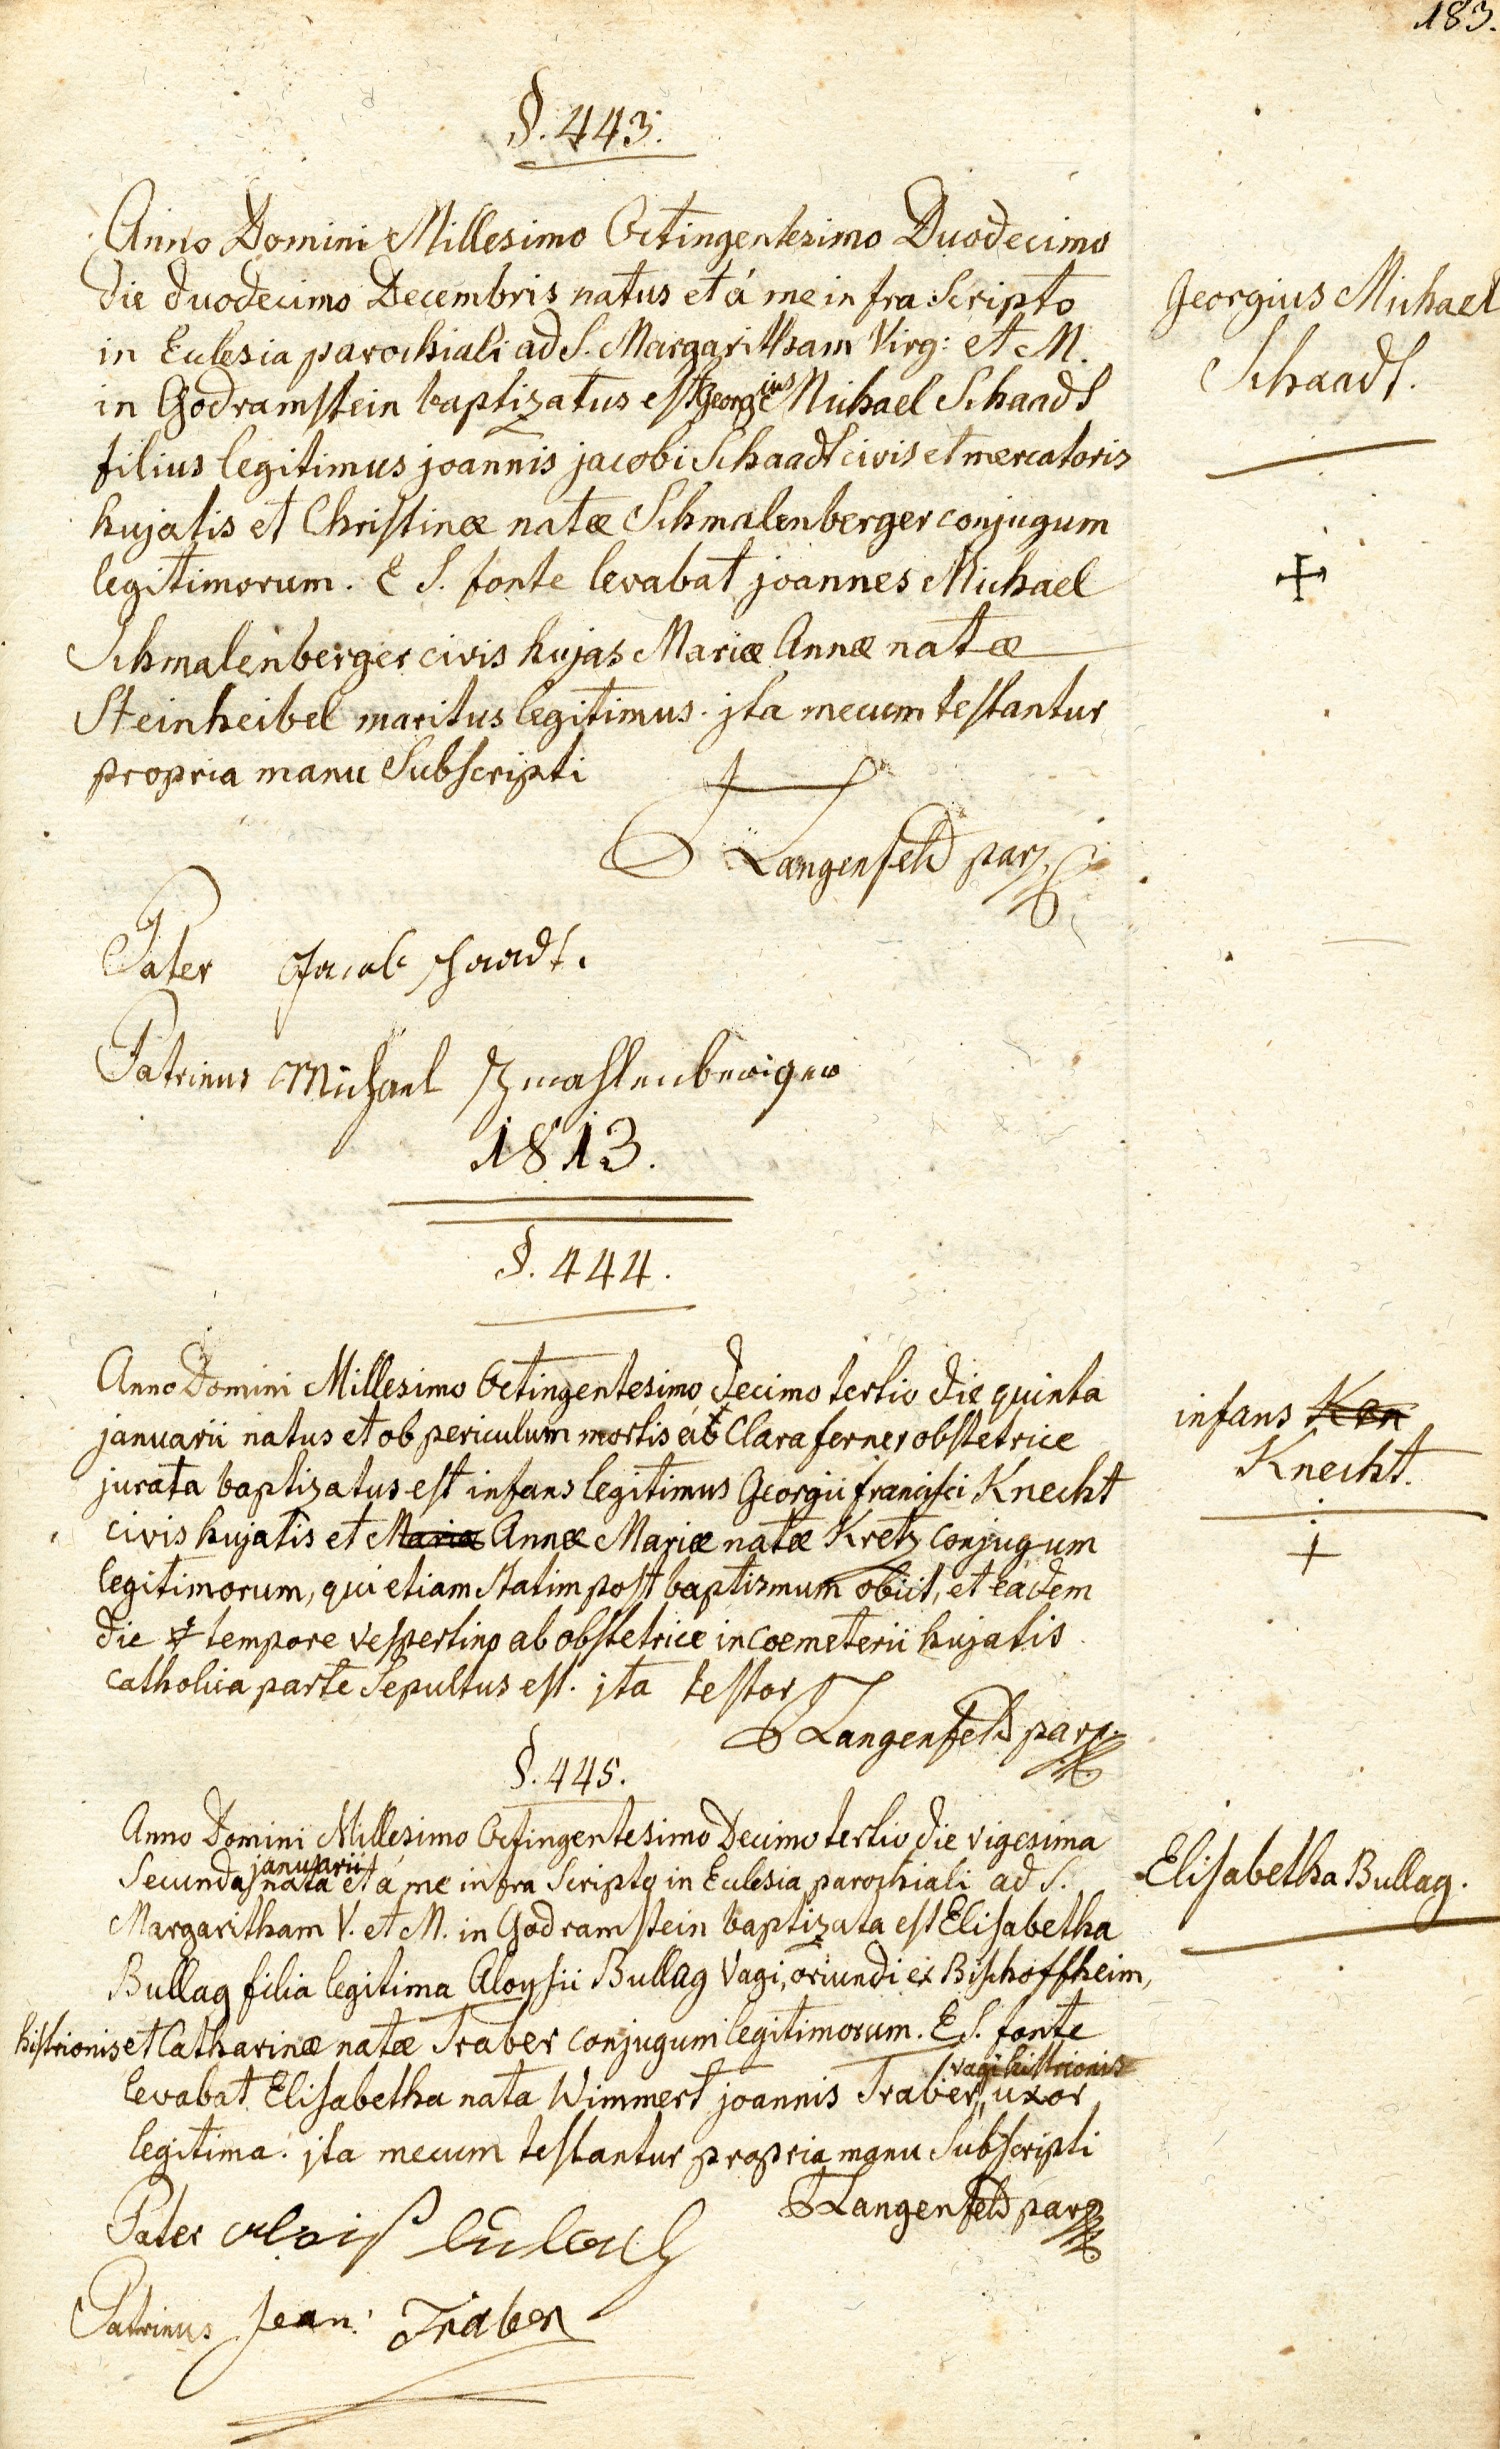 183.
§. 443.
Anno Domini Millesimo Octingentesimo Duodecimo
die duodecimo Decembris natus et á me infra Scripto
in Eclesia parochiali ad S. Margaritham Virg: et M.
in Godramstein baptizatus est Georgius Michael Schaadt
filius legitimus joannis jacobi Schaadt civis et mercatoris
hujatis et Christinæ natæ Schmalenberger conjugum
legitimorum. E S. fonte levabat joannes Michael
Schmalenberger civis hujas Mariæ Annæ natæ
Steinheibel maritus legitimus. jta mecum testantur
propria manu Subscripti
Georgius Michael
Schaadt.
Langenfeld par.
Pater Jacob schaadt.
Patrinus Michael Schmahlenberiger
1813.
§. 444.
Anno Domini Millesimo Octingentesimo decimo tertio die quinta
januarii natus et ob periculum mortis ab Clara ferner obstetrice
jurata baptizatus est infans legitimus Georgii francisci Knecht
civis hujatis et Maria Annæ Mariæ natæ Kretz conjugum
legitimorum, qui etiam Statim post baptismum obiit, et eádem
die tempore vespertino ab obstetrice in coemeterii hujatis
catholica parte Sepultus est. jta testor
infans Ken
Knecht.
Langenfeld par.
§. 445.
Anno Domini Millesimo Octingentesimo Decimo tertio die vigesima
Secunda januarii nata et á me infra Scripto in Eclesia parochiali ad S.
Margaritham V. et M. in Godramstein baptizata est Elisabetha
Bullag filia legitima Aloysii Bullag Vagi, oriundi ex Bischoffheim,
histrionis et Catharinæ natæ Traber conjugum legitimorum. E S. fonte
levabat Elisabetha nata Wimmert joannis Traber, vagi histrionis uxor
legitima. jta mecum testantur propria manu Subscripti
Elisabetha Bullag.
Langenfeld par
Pater Alois
Patrinus Jean Traber